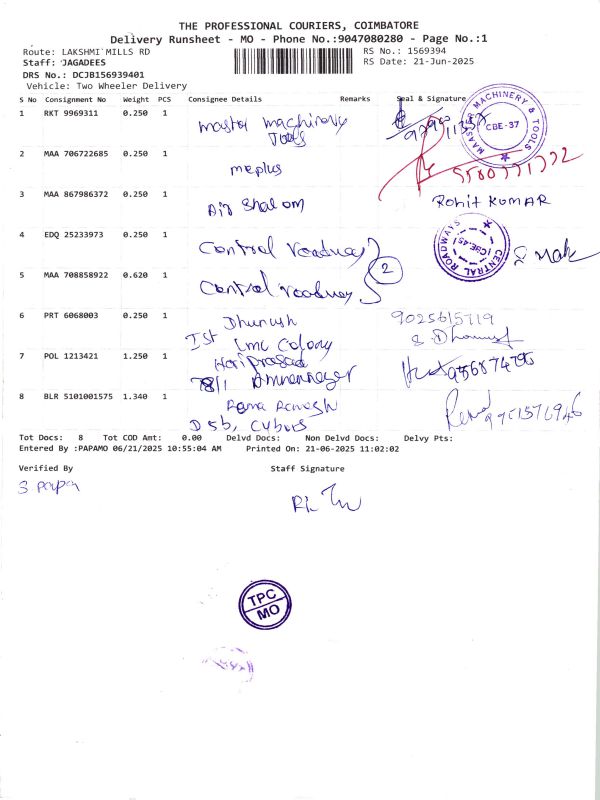 THE PROFESSIONAL COURIERS, COIMBATORE
Delivery Runsheet - MO - Phone No.:9047080280 - Page No.:1
Route: LAKSHMI MILLS RD RS No.: 1569394
Staff: JAGADEES RS Date: 21-Jun-2025
DRS No.: DCJB156939401
Vehicle: Two Wheeler Delivery
S No Consignment No Weight PCS Consignee Details Remarks Seal & Signature
1 RKT 9969311 0.250 1 Master machinery
Tools
MAASTAR MACHINERY & TOOLS
CBE-37
2 MAA 706722685 0.250 1 meplus
3 MAA 867986372 0.250 1 Air Shalom Rohit KUMAR
4 EDQ 25233973 0.250 1 Central roadways
CENTRAL ROADWAYS
2
5 MAA 708858922 0.620 1 Central roadways
6 PRT 6068003 0.250 1 Dhunush 9025615719
Ist lmc Colony
7 POL 1213421 1.250 1 Hariprasad
8 BLR 5101001575 1.340 1 Rama Ramesh
Tot Docs: 8 Tot COD Amt: 0.00 Delvd Docs: Non Delvd Docs: Delvy Pts:
Entered By :PAPAMO 06/21/2025 10:55:04 AM Printed On: 21-06-2025 11:02:02
Verified By Staff Signature
TPC
MO